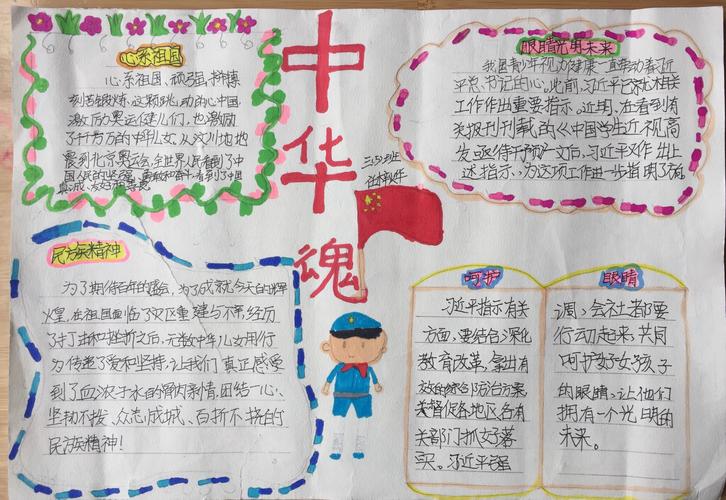 中华魂
三(5)班
心系祖国
心系祖国、顽强、拼搏
刻苦锻炼,这颗跳动的中国
激历力奥运健儿们,也激励
了千千万万的中华儿女,从汶川地
震到北京奥运会,全世界人民看到了中
国人民的坚强、勇敢和奋斗,看到了中国
真诚、友好和善意
眼睛光明未来
我国青少年视力健康一直牵动着习近
平总书记的心。此前,习近平记就相关
工作作出重要指示。近期,在看到有
关报刊刊载的《中国学生近视高
发亟待干预》一文后,习近平又作出上
述指示,为这项工作进一步指明了方向
民族精神
为了期待百年的盛会,为了成就今天的辉
火皇,在祖国面临了灾区重建与不带经历
了打击和挫折之后,无数中华儿女用行
为传递了爱和坚持,让我们真正感受
到了血浓于水的骨肉亲情,团结一心、
坚韧不拔、众志成城、百折不挠的
民族精神!
呵护
习近平指示有关
方面,要结合深化
教育改革,拿出有
效的综合防治方案,
督促各地区各有
关部门抓好落
实。习近平强
眼睛
调,会社者都要
行动起来,共同
呵护好女孩子
的眼睛,让他们
拥有一个光明的
未来。